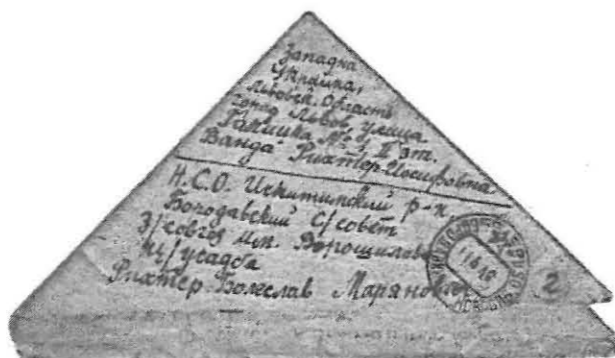 Западна
Украина,
Львовск. Область
город Львов, улица
№ 5, II эт.
Ванда Рихтер-Иосифовна
Н.С.О. Искитимский р-н,
Бородавский с/совет
З/совхоз им. Ворошилова
Ц/усадба
Рихтер Болеслав Марянович
2